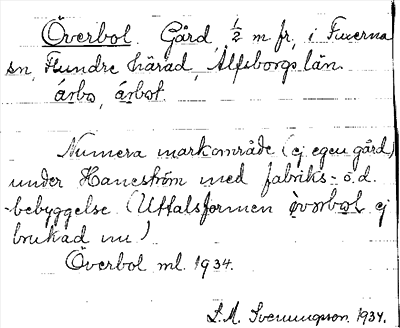 Överbol. Gård, 1/2 m fr, i Fuxerna
sn, Flundre härad, Älfsborgs län.
árbo, árbot
Numera markområde (ej egen gård)
under Haneström med fabriks- o. d.
-bebyggelse (Uttalsformen ej
brukad nu)
Överbol ml. 1934.
S.M. Svenungsson 1934.